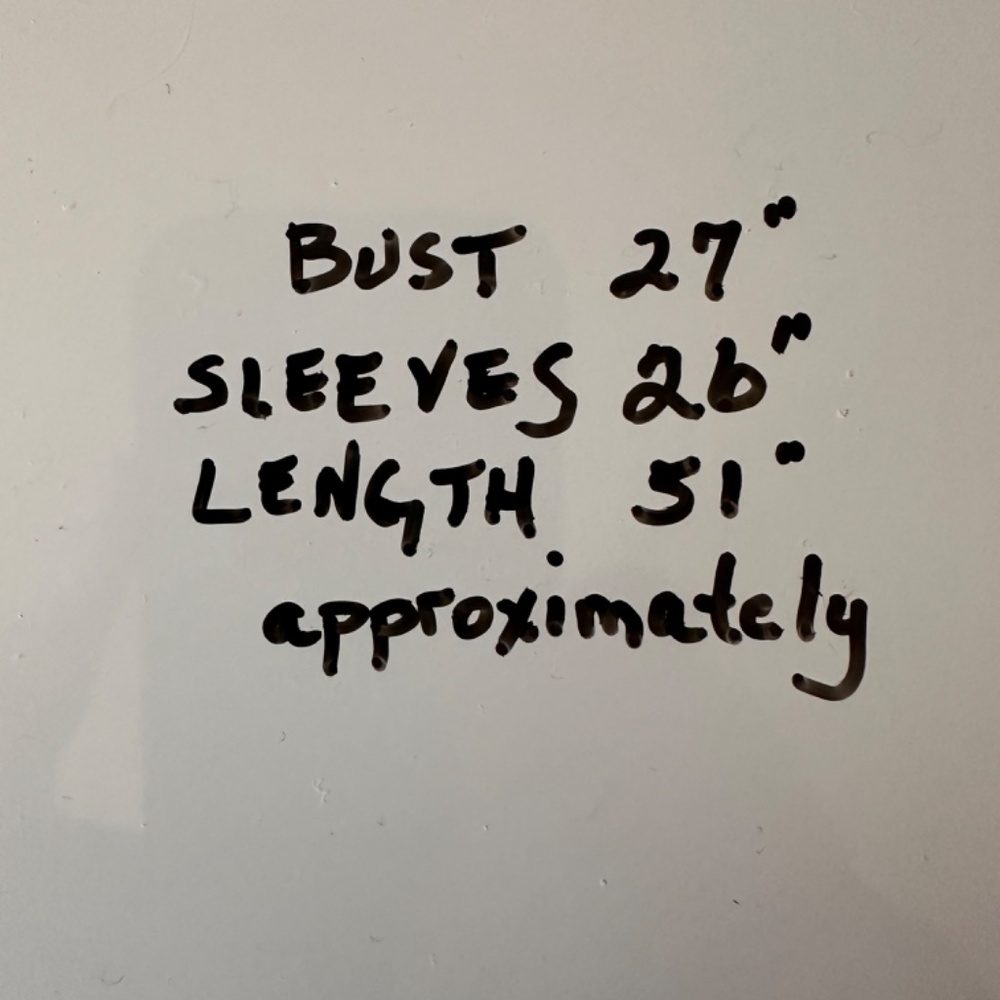 BUST 27"
SLEEVES 26"
LENGTH 51"
approximately